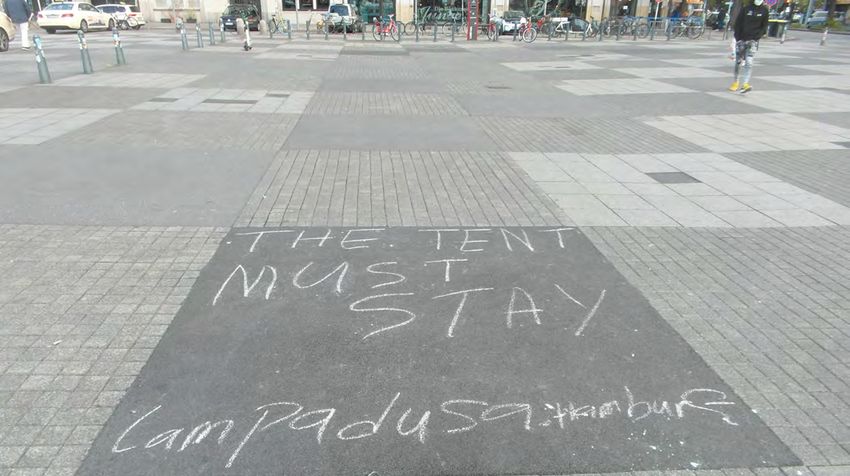 THE TENT
MUST
STAY
Lampadusa:Hamburg